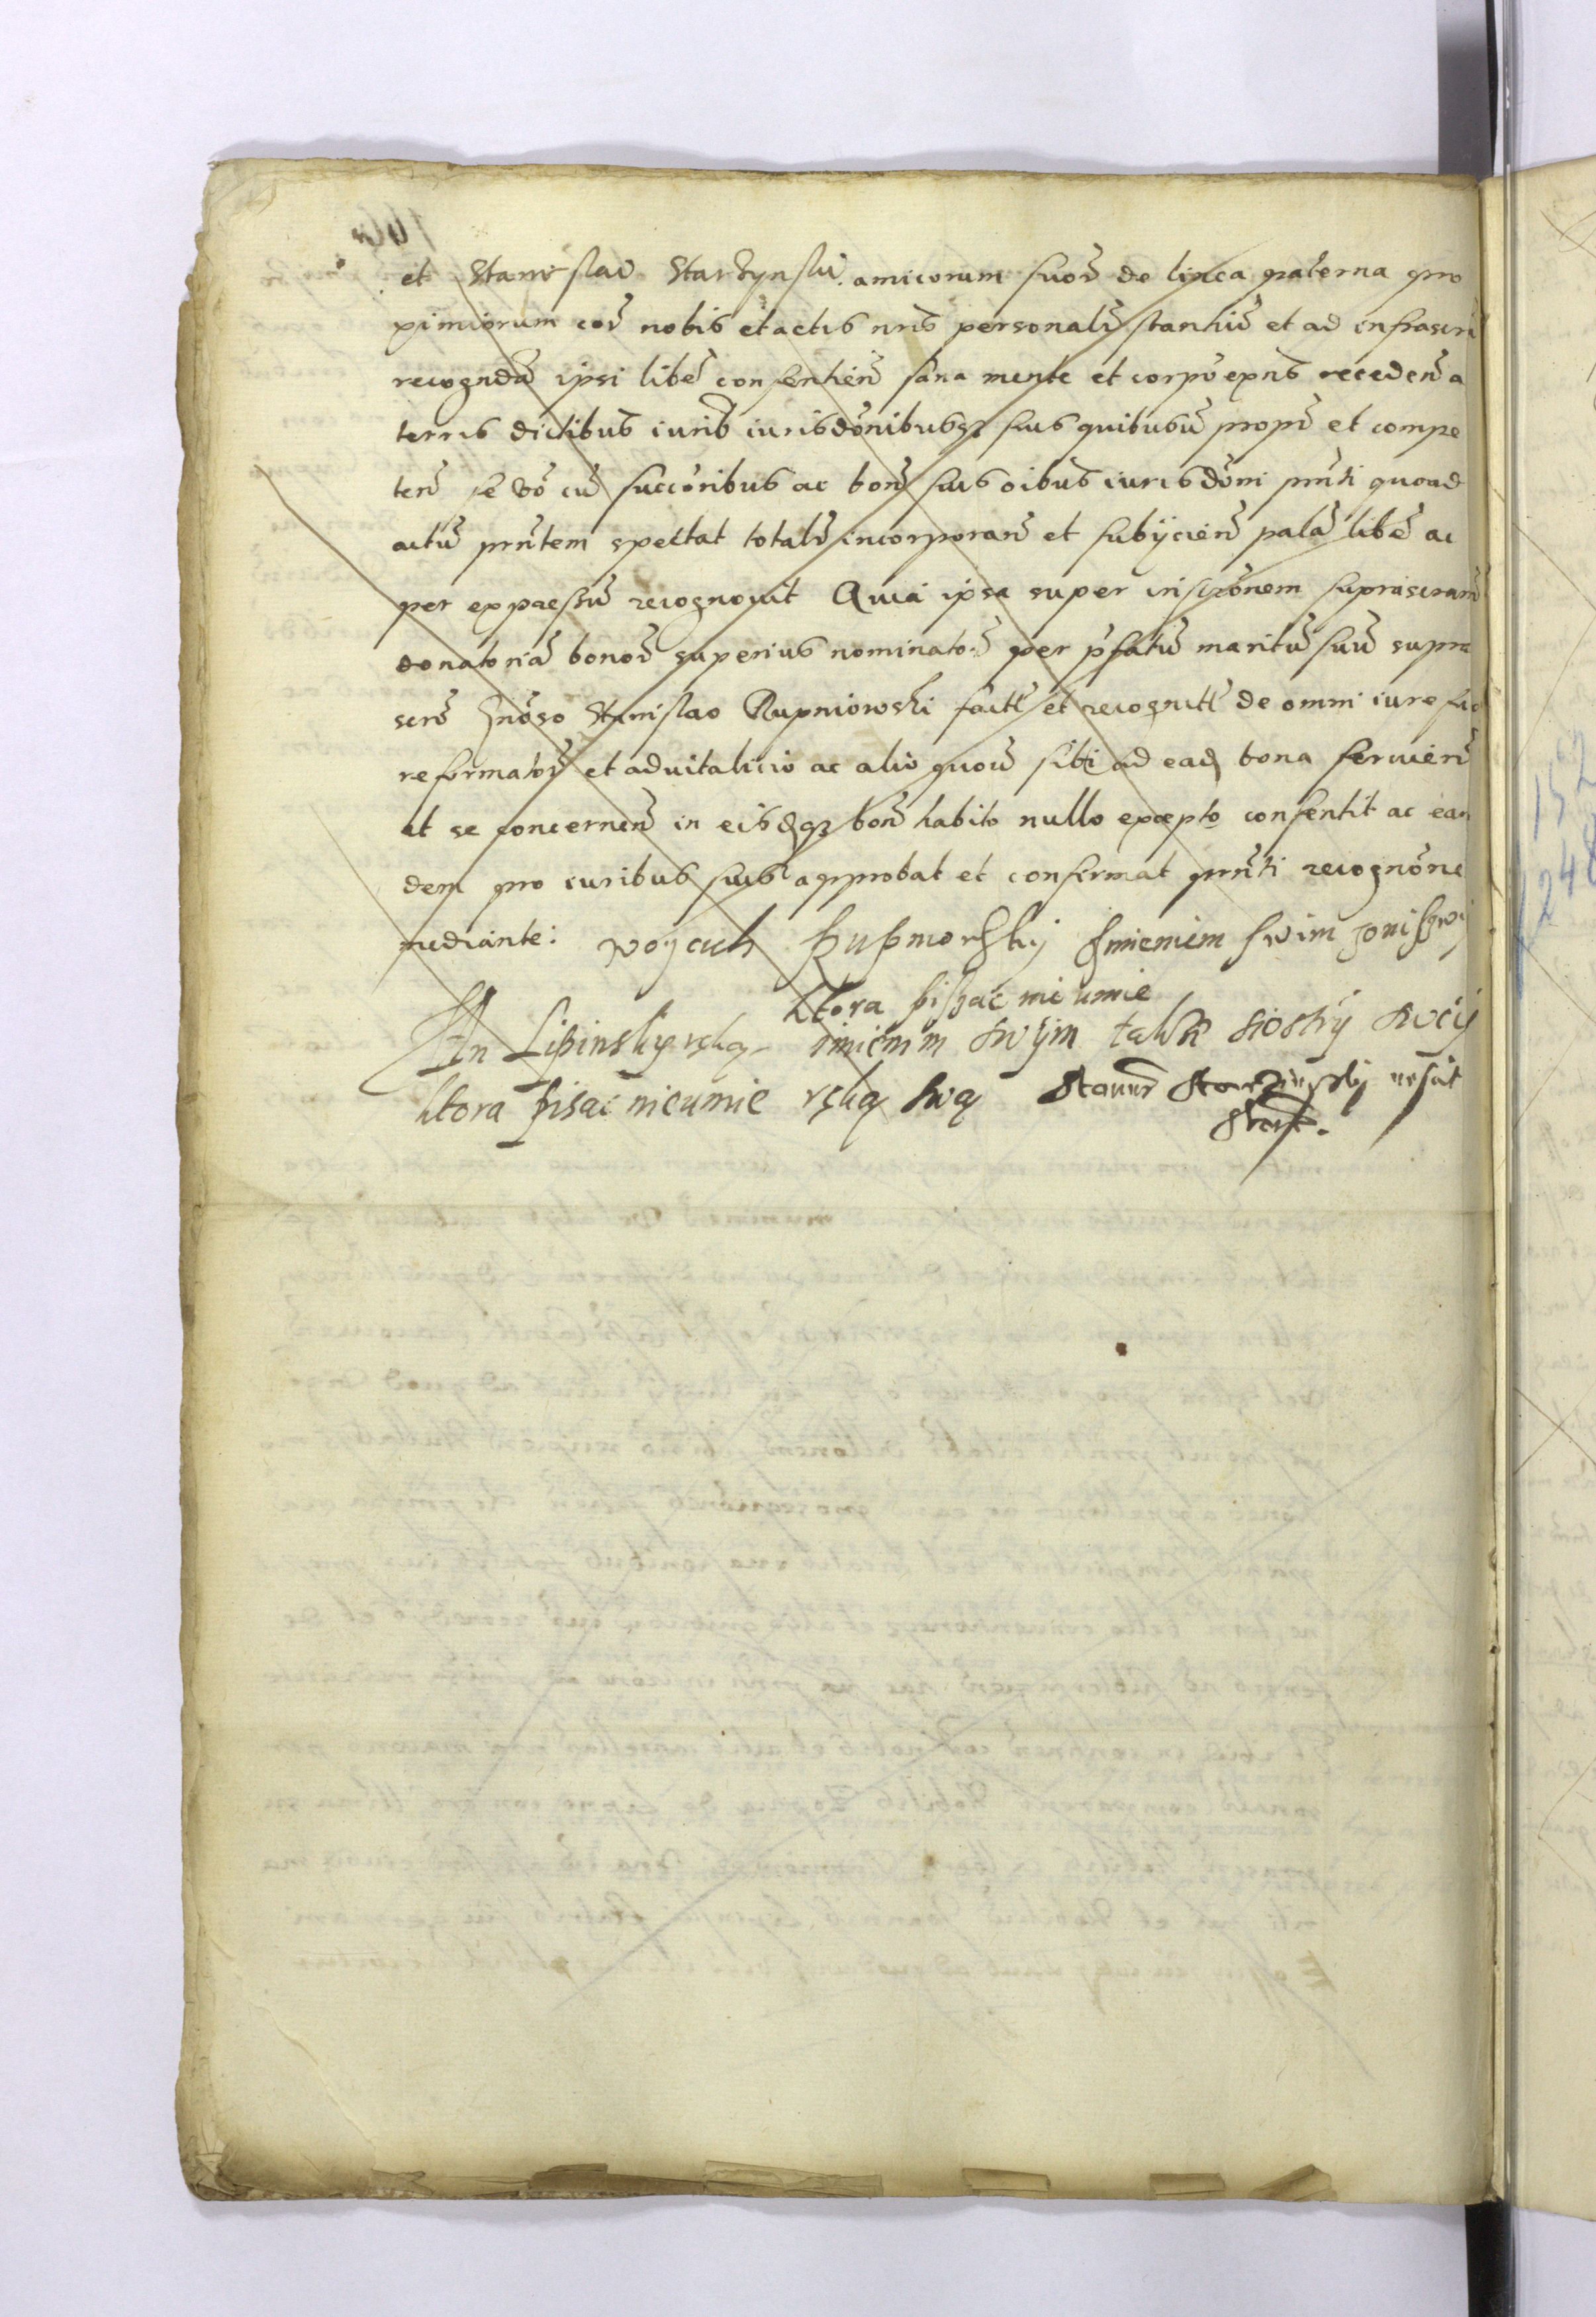 et Stanislai Starzynski amicorum suor̃ de linea paterna pro
pimiorum cor̃ nobis et actis nris̃ personalr̃ stantiũ et ad infrascri
recognda ipsi liber̃ consentien̄ sana mente et corpor̃ expns̃ receden̄ a
terris dictibus̃ iurib̃ iurisdõnibusqʒ suis quibusuis̃ propr̃ et compe
ten̄ se võ cũ succõribus ac bon̄ suis oibus̃ iurisdõni prñti quoad
actũ prñtem spectat totalr̃ incorporan̄ et subÿcien̄ palã liberẽ ac
per expressũ recognouit Quia ipsa super inscrõnem suprascram̃
donatoriã bonor̃ superius nominator̃ per p̃fatũ maritũ suũ supra
scrõ Gnõso Stanislao Rupniowski factã et recognitã de omni iure suo
reformator̃ et aduitalicio ac alio quouis̃ sibi ad eadẽ bona seruien̄
et se concernen̄ in eisdẽqʒ bon̄ habito nullo excepto consentit ac ean
dem pro iuribus suis approbat et confirmat prñti recognõne
mediante: woyciech Rupniowskij Jmieniem swim zoni swy
ktora pisac nie umie
Jan Lipinsky ręką imienim swÿm takze siostrÿ sweÿ
ktora pisac nieumie ręką swą Stanis̃ Starzinskÿ